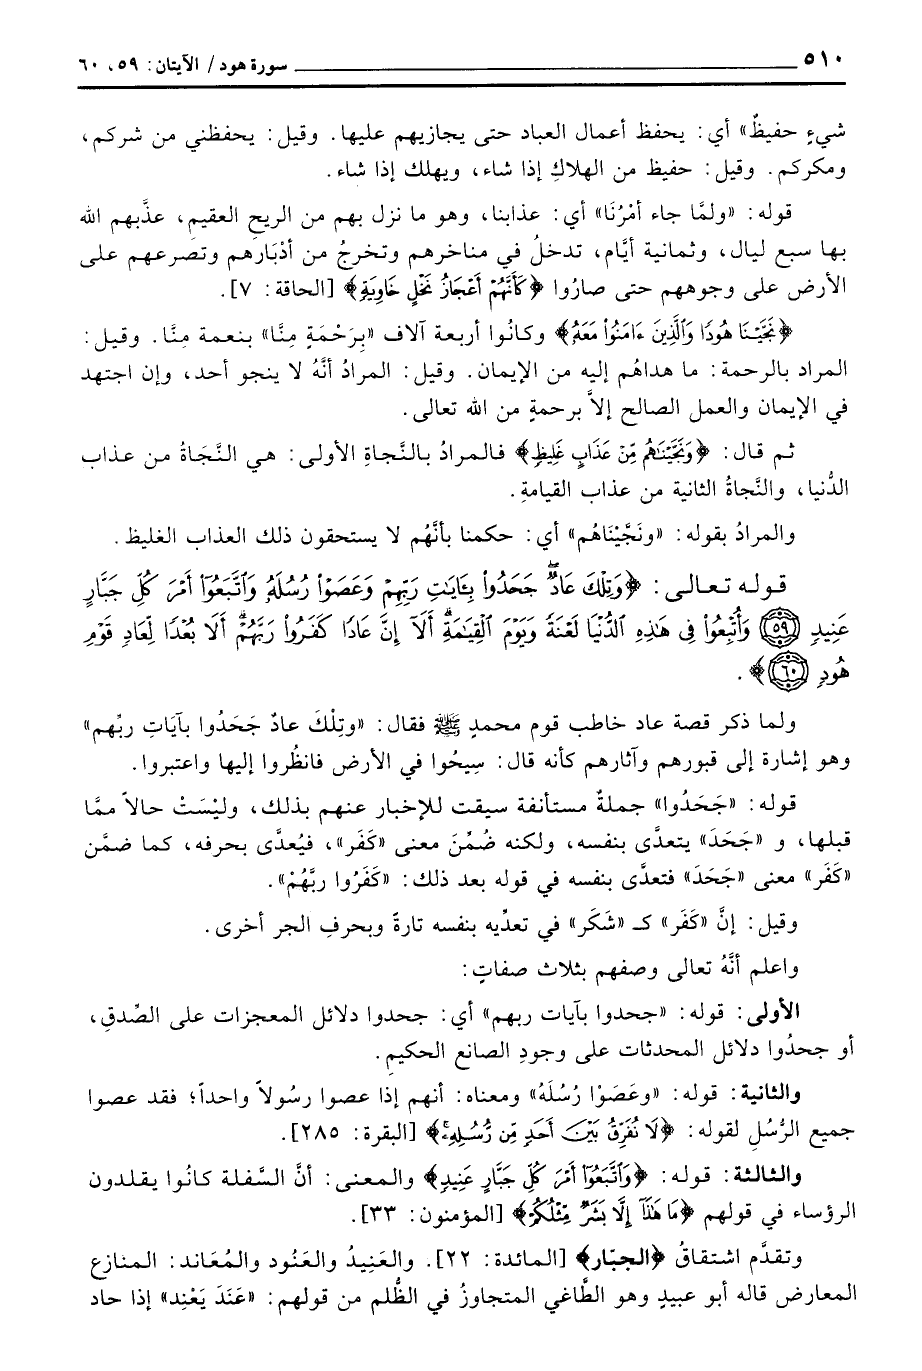 ٥١٠ ــــــــــــــــــــ سورة هود / الآيتان: ٥٩، ٦٠
شيءٍ حفيظٌ» أي: يحفظ أعمال العباد حتى يجازيهم عليها. وقيل: يحفظني من شركم،
ومكركم. وقيل: حفيظ من الهلاكِ إذا شاء، ويهلك إذا شاء.
قوله: «ولمَّا جاء أمْرُنَا» أي: عذابنا، وهو ما نزل بهم من الريحِ العقيم، عذَّبهم الله
بها سبع ليال، وثمانية أيَّام، تدخلُ في مناخرهم وتخرجُ من أدْبَارهم وتصرعهم على
الأرض على وجوههم حتى صارُوا ﴿كَأَنَّهُمْ أَعْجَازُ نَخْلٍ خَاوِيَةٍ﴾ [الحاقة: ٧].
﴿نَجَّيْنَا هُودًا وَٱلَّذِينَ ءَامَنُوا۟ مَعَهُ﴾ وكانُوا أربعة آلاف «بِرَحْمَةٍ مِنَّا» بنعمة مِنَّا. وقيل:
المراد بالرحمة: ما هداهُم إليه من الإيمان. وقيل: المرادُ أنَّهُ لا ينجو أحد، وإن اجتهد
في الإيمان والعمل الصالح إلاَّ برحمةٍ من الله تعالى.
ثم قال: ﴿وَنَجَّيْنَٰهُم مِّنْ عَذَابٍ غَلِيظٍ﴾ فالمرادُ بالنَّجاةِ الأولى: هي النَّجَاةُ من عذاب
الدُّنيا، والنَّجاةُ الثانية من عذاب القيامةِ.
والمرادُ بقوله: «ونَجَّيْنَاهُم» أي: حكمنا بأنَّهُم لا يستحقون ذلك العذاب الغليظ.
قوله تعالى: ﴿وَتِلْكَ عَادٌۖ جَحَدُوا۟ بِـَٔايَٰتِ رَبِّهِمْ وَعَصَوْا۟ رُسُلَهُۥ وَٱتَّبَعُوٓا۟ أَمْرَ كُلِّ جَبَّارٍ
عَنِيدٍ ٥٩ وَأُتْبِعُوا۟ فِى هَٰذِهِ ٱلدُّنْيَا لَعْنَةً وَيَوْمَ ٱلْقِيَٰمَةِۗ أَلَآ إِنَّ عَادًا كَفَرُوا۟ رَبَّهُمْۗ أَلَا بُعْدًا لِّعَادٍ قَوْمِ
هُودٍ ٦٠﴾.
ولما ذكر قصة عاد خاطب قوم محمدٍ ﷺ فقال: «وتِلْكَ عادٌ جَحَدُوا بآيَاتِ ربِّهم»
وهو إشارة إلى قبورهم وآثارهم كأنه قال: سِيحُوا في الأرض فانظُروا إليها واعتبروا.
قوله: «جَحَدُوا» جملةٌ مستأنفة سيقت للإخبار عنهم بذلك، وليْسَتْ حالاً ممَّا
قبلها، و «جَحَدَ» يتعدَّى بنفسه، ولكنه ضُمِّنَ معنى «كَفَر»، فيُعدَّى بحرفه، كما ضمَّن
«كَفَر» معنى «جَحَدَ» فتعدَّى بنفسه في قوله بعد ذلك: «كَفَرُوا ربَّهُمْ».
وقيل: إنَّ «كَفَر» كـ «شَكَر» في تعدِّيه بنفسه تارةً وبحرفِ الجر أخرى.
واعلم أنَّهُ تعالى وصفهم بثلاث صفاتٍ:
الأولى: قوله: «جحدوا بآيات ربهم» أي: جحدوا دلائل المعجزات على الصِّدقِ،
أو جحدُوا دلائل المحدثات على وجودِ الصانع الحكيمِ.
والثانية: قوله: «وعَصَوْا رُسُلَهُ» ومعناه: أنهم إذا عصوا رسُولاً واحداً؛ فقد عصوا
جميع الرُّسُلِ لقوله: ﴿لَا نُفَرِّقُ بَيْنَ أَحَدٍ مِّن رُّسُلِهِۦ﴾ [البقرة: ٢٨٥].
والثالثة: قوله: ﴿وَٱتَّبَعُوٓا۟ أَمْرَ كُلِّ جَبَّارٍ عَنِيدٍ﴾ والمعنى: أنَّ السَّفلة كانُوا يقلدون
الرؤساء في قولهم ﴿مَا هَٰذَآ إِلَّا بَشَرٌ مِّثْلُكُمْ﴾ [المؤمنون: ٣٣].
وتقدَّم اشتقاقُ ﴿الجبّار﴾ [المائدة: ٢٢]. والعَنِيدُ والعَنُود والمُعَاند: المنازع
المعارض قاله أبو عبيدٍ وهو الطَّاغي المتجاوزُ في الظُّلم من قولهم: «عَنَدَ يَعْنِد» إذا حاد